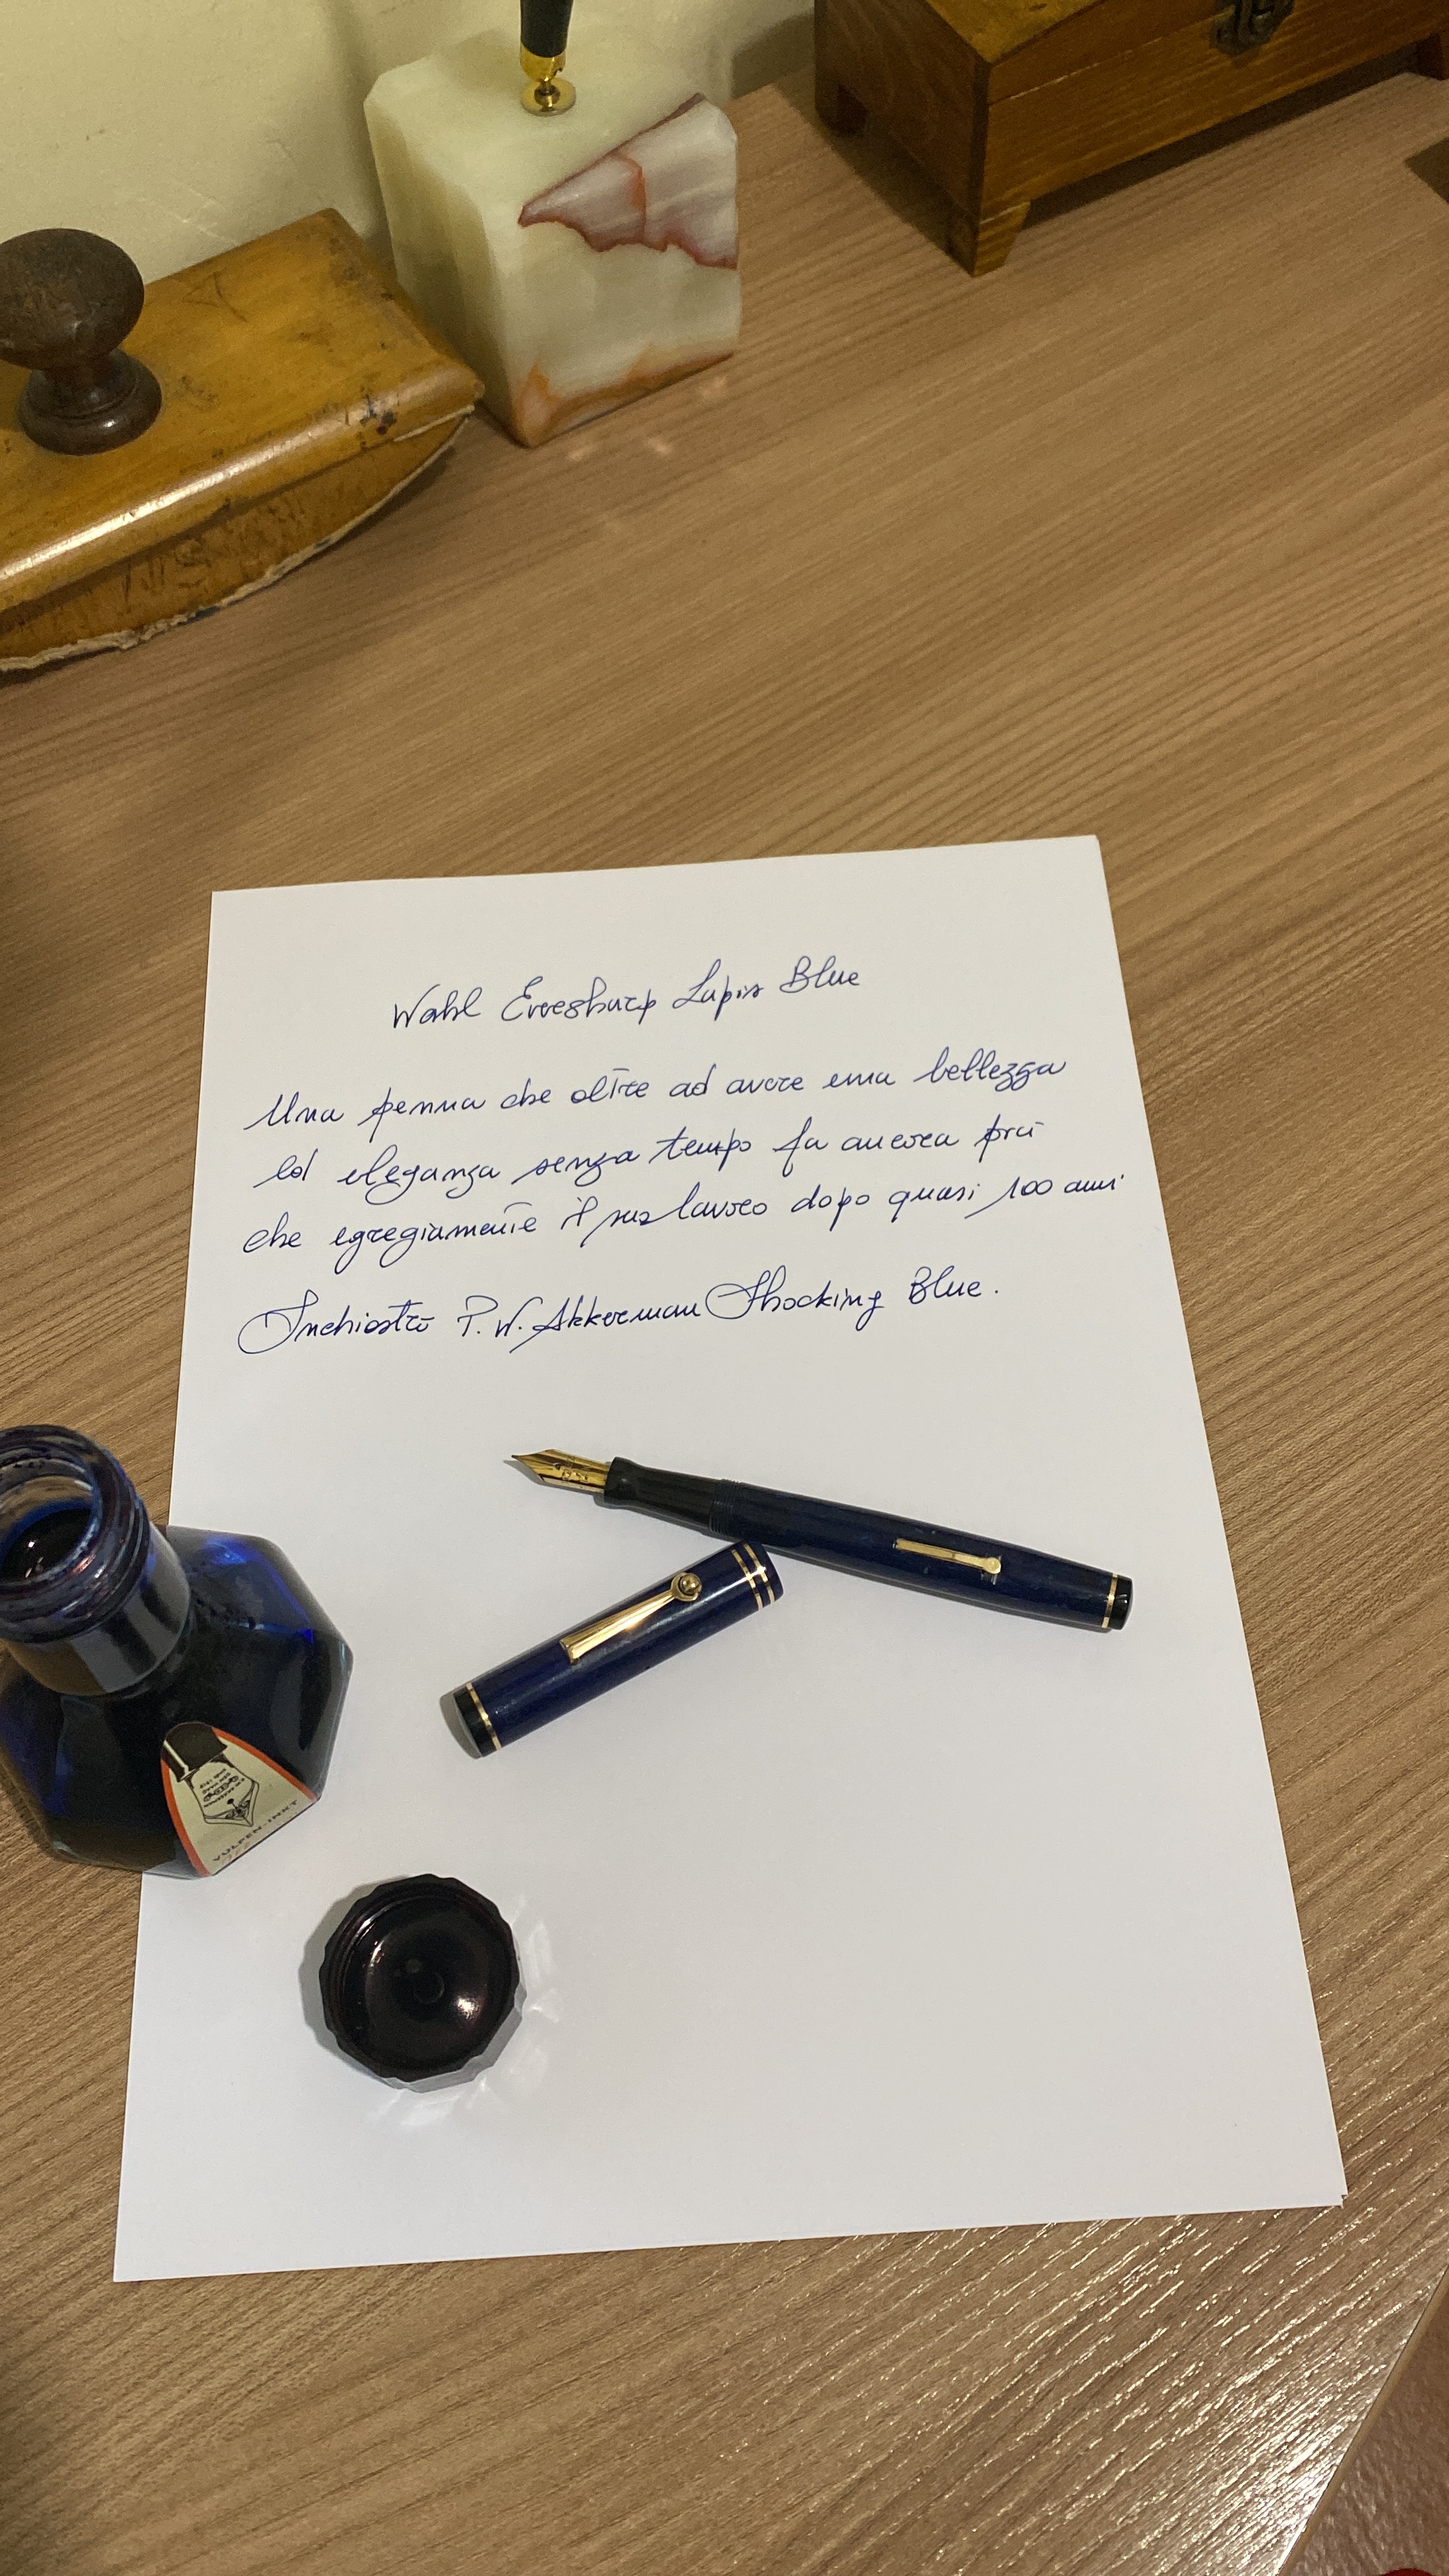 Wahl Eversharp Lapis Blue
Una penna che oltre ad avere una bellezza
ed eleganza senza tempo fa ancora più
che egregiamente il suo lavoro dopo quasi 100 anni
Inchiostro P.W. Akkerman Shocking Blue.
VULPEN-INKT